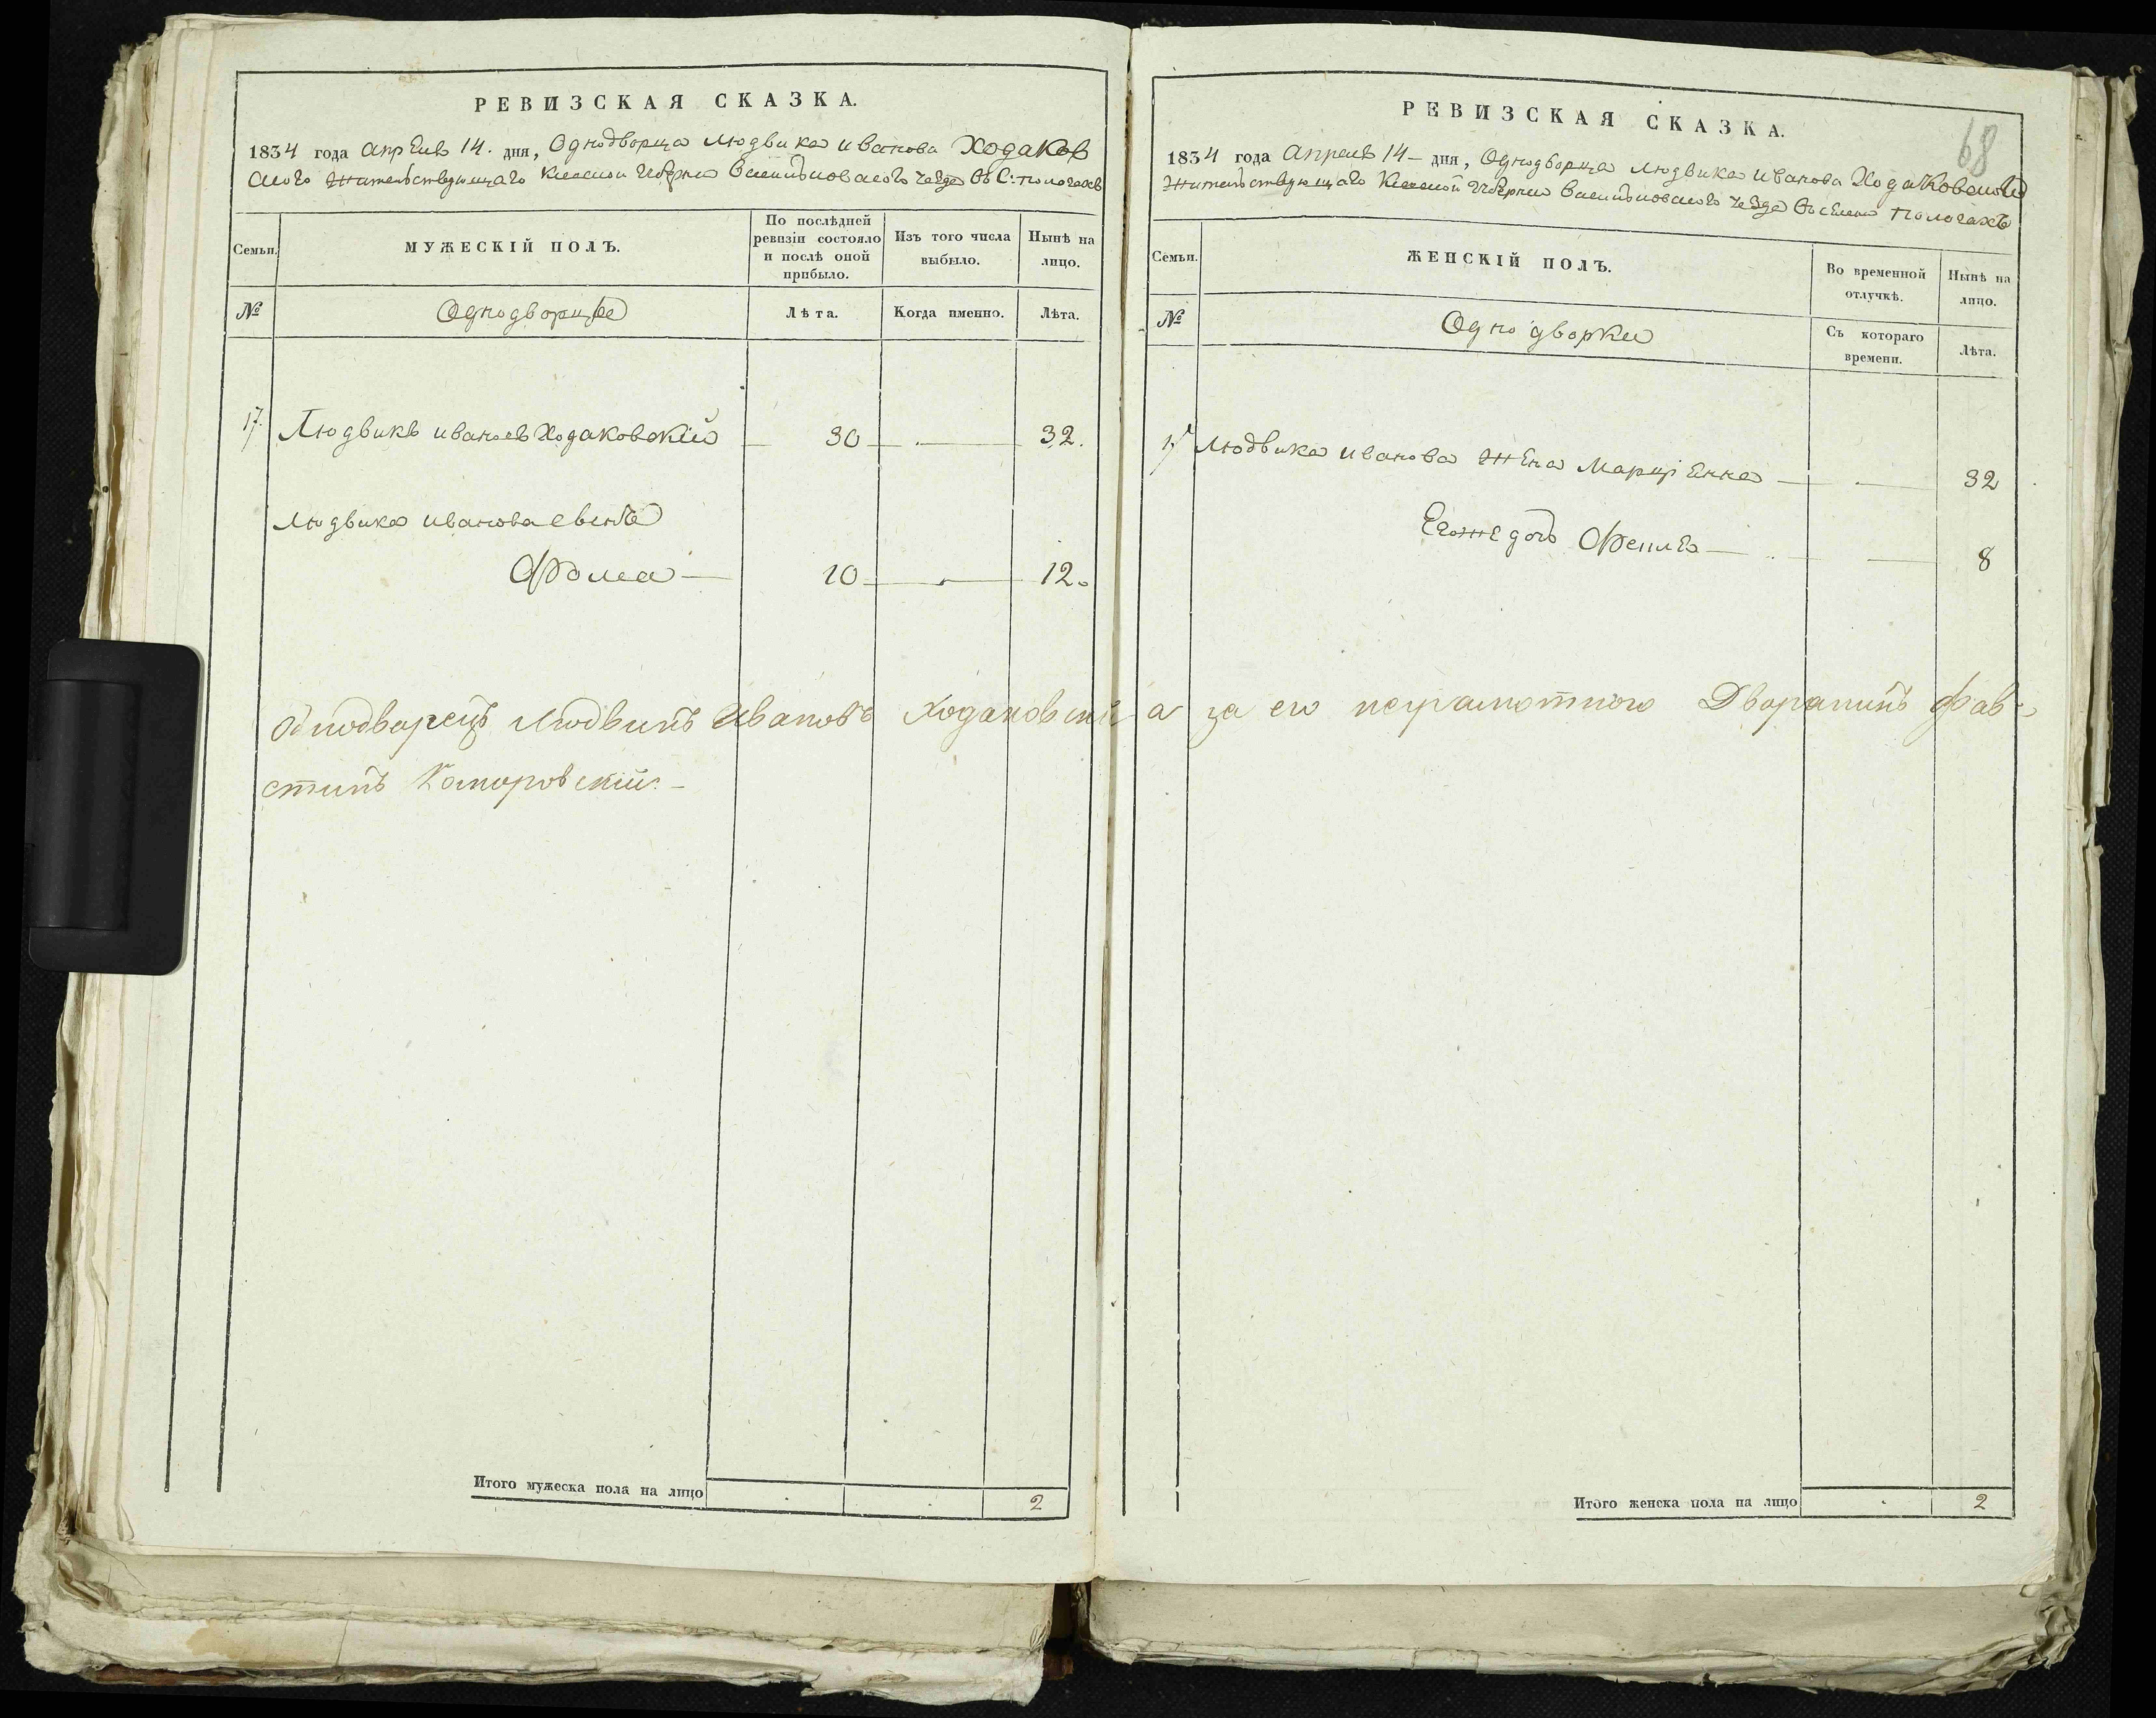 РЕВИЗСКАЯ СКАЗКА.
1834 года апреля 14. дня, Однодворца Людвика иванова Ходаков
ского Жительствующаго Киевской Губернии Васильковского уезда въ С: пологахъ
Семьи.
МУЖЕСКІЙ ПОЛЪ.
По послѣдней ревизіи состояло и послѣ оной прибыло.
Изъ того числа выбыло.
Нынѣ на лицо.
№
Однодворцы
Лѣта.
Когда именно.
Лѣта.
17. Людвикъ ивановъ Ходаковскій 30 32.
Людвика иванова сынъ
Фома 10 12.
Однодварецъ Людвикъ Ивановъ Ходаковский а за его неграмотного Дваранинъ Фав-
стинъ Коморовский.
Итого мужеска пола на лицо 2
68
РЕВИЗСКАЯ СКАЗКА.
1834 года апреля 14 дня, Однодворца Людвика иванова Ходаковского
Жительствующаго Киевской Губернии Васильковского уезда въ селении пологахъ
Семьи.
ЖЕНСКІЙ ПОЛЪ.
Во временной отлучкѣ.
Нынѣ на лицо.
№
Однодворки
Съ котораго времени.
Лѣта.
17 Людвика иванова Жена Марціенна 32
Егоже дочь 8
Итого женска пола на лицо 2